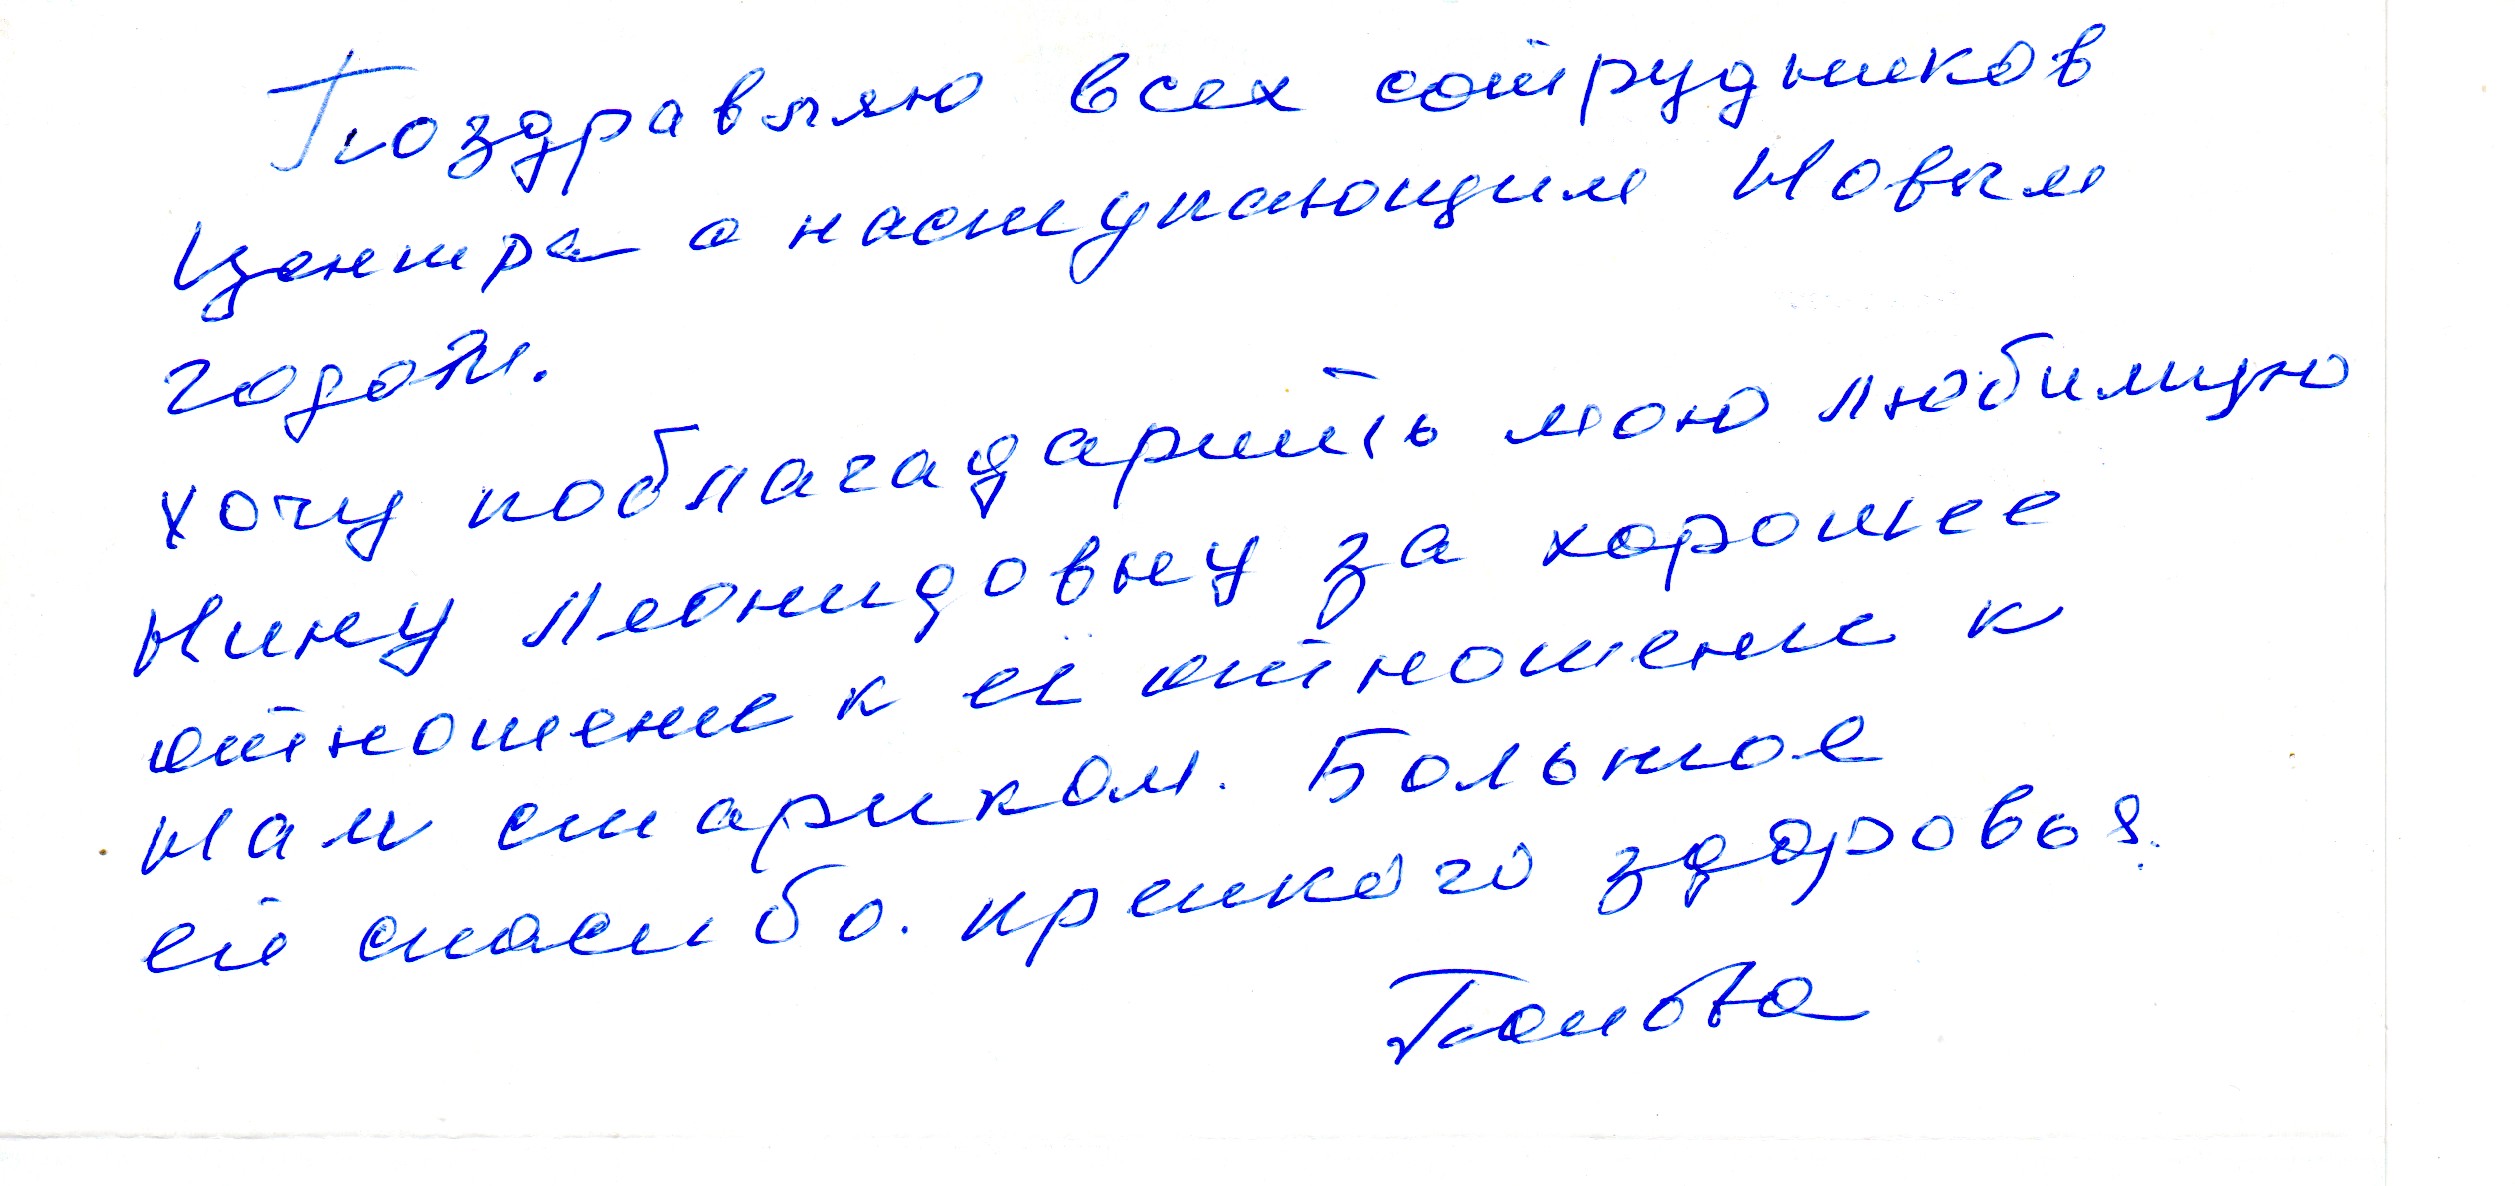 Поздравляю всех сотрудников
центра с наступающим Новым
годом.
Хочу поблагадарить мою любимую
Нину Леонидовну за хорошее
отношение к её отношение к
нам старикам. Большое
ей спасибо. крепкого здоровья.